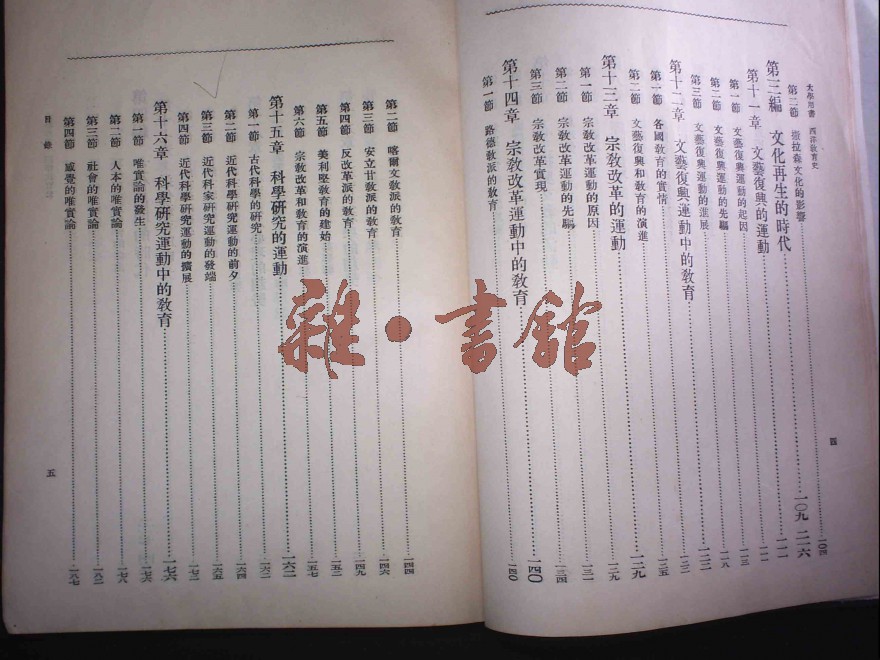 大學用書 西洋教育史
四
第二節 撒拉森文化的影響……一〇四
第三編 文化再生的時代……一〇九 二一六
第十一章 文藝復興的運動……一一一
第一節 文藝復興運動的起因……一一一
第二節 文藝復興運動的先驅……一一三
第三節 文藝復興運動的進展……一一八
第十二章 文藝復興運動中的教育……一二二
第一節 各國教育的實情……一二二
第二節 文藝復興和教育的演進……一二五
第十三章 宗教改革的運動……一二九
第一節 宗教改革運動的原因……一二九
第二節 宗教改革運動的先驅……一三一
第三節 宗教改革實現……一三四
第十四章 宗教改革運動中的教育……一四〇
第一節 路德教派的教育……一四〇
第二節 喀爾文教派的教育……一四四
第三節 安立甘教派的教育……一四六
第四節 反改革派的教育……一四九
第五節 美利堅教育的建始……一五二
第六節 宗教改革和教育的演進……一五七
第十五章 科學研究的運動……一六二
第一節 古代科學的研究……一六二
第二節 近代科學研究運動的前夕……一六四
第三節 近代科家研究運動的發端……一六五
第四節 近代科學研究運動的擴展……一七二
第十六章 科學研究運動中的教育……一七六
第一節 唯實論的發生……一七六
第二節 人本的唯實論……一七八
第三節 社會的唯實論……一八二
第四節 感覺的唯實論……一八七
目錄
五
雜·書舘